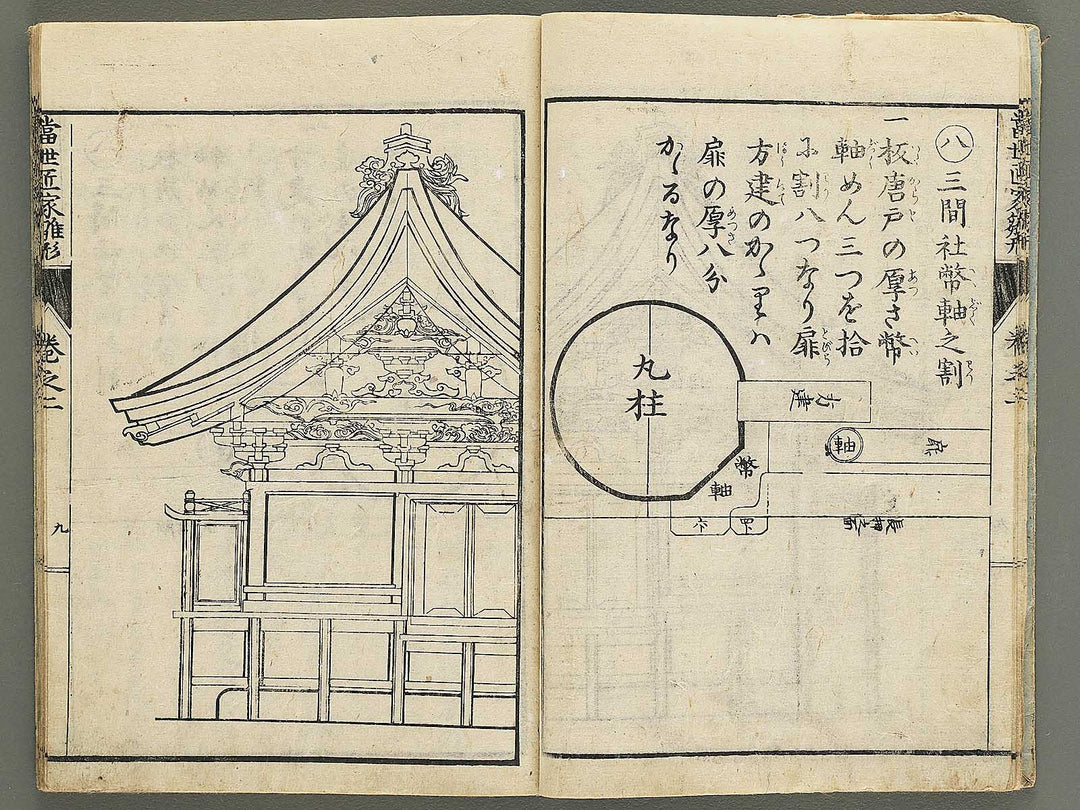 八 三間社幣軸之割
一板唐戸の厚さ幣
軸めん三つを拾
に割八つなり扉
方建のかゝりハ
扉の厚八分
かゝるなり
丸柱
方建
軸
扉
幣
軸
六
四
長押之面
當世匠家雛形
巻之二
九